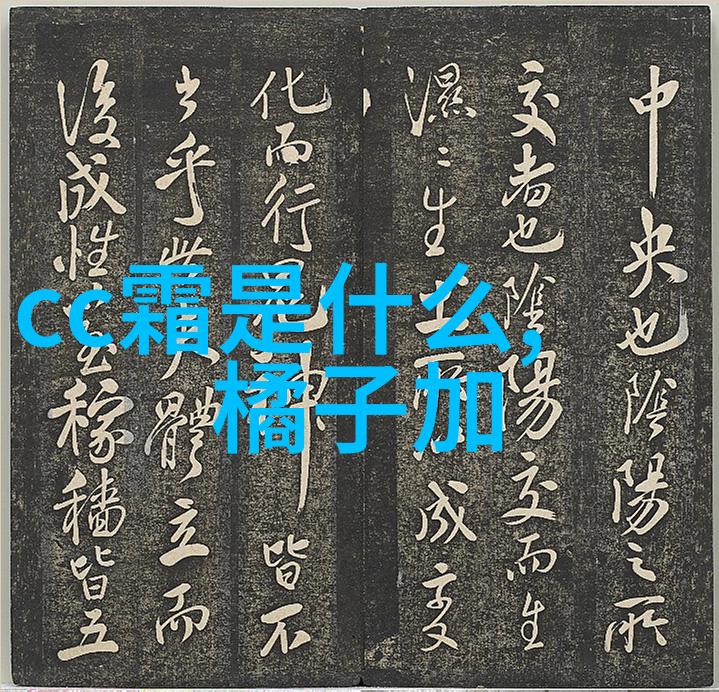 cc霜是什么,
橘子加
中央也陰陽之所
交者也陰陽交而生
濕〻生土所成變
化而行神皆不
乎體立而
後成性稼穡皆五